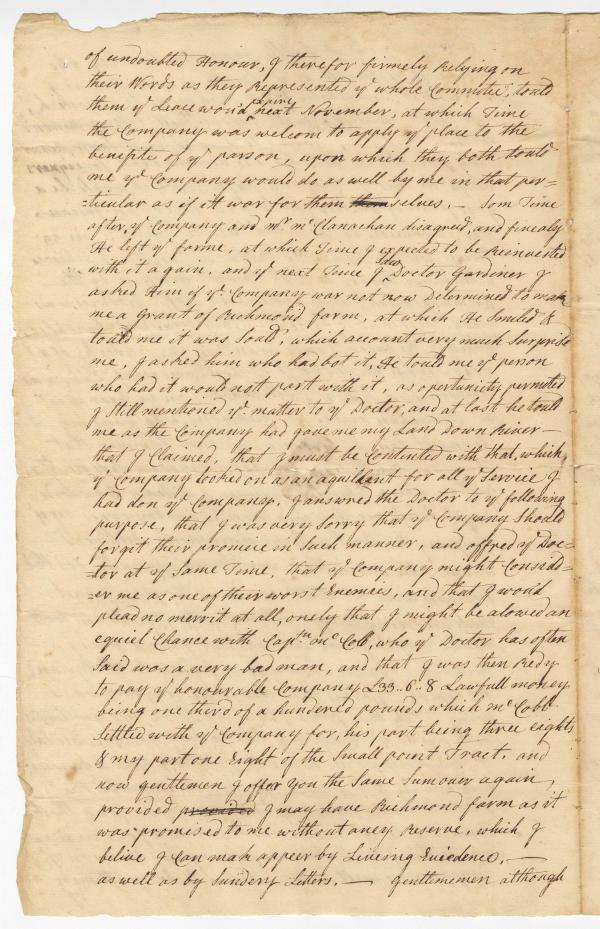 of undoubted Honour, I therefor firmely Relying on
their Words as they Represented ye whole Committie, tould
them ye Leace would expire next November, at which Time
the Company was welcom to apply ye place to the
benifite of ye parson, upon which they both tould
me ye Company would do as well by me in that per-
=ticular as if it war for them themselves. — Som Time
after, ye Company and Mr McClanachan disagreed, and finealy
He left ye farme, at which Time I expected to be Reinvested
with it again. and ye next Time I saw Doctor Gardener I
asked Him if ye Company war not now Determined to make
me a Grant of Richmond farm, at which He Smiled &
tould me it was Sould, which account very much Surprise
me, I asked him who had bot it, He tould me ye person
who had it would not part with it, as opertunity permited
I Still mentioned ye matter to ye Doctor, and at last he tould
me as the Company had gave me my Land Down River —
that I Claimed, that I must be Contented with that, which
ye Company looked on as an aquillant for all ye Service I
had don ye Company. I answred the Doctor to ye following
purpose, that I was very Sorry that ye Company Should
forgit their promise in Such manner, and offred ye Doc-
=tor at ye Same Time, that ye Company might Consid-
=er me as one of their worst Enemeis, and that I would
plead no merrit at all, onely that I might be alowed an
equiel Chance with Captn McCob, who ye Doctor has often
Said was a very bad man, and that I was then Redy
to pay ye honourable Company £33..6..8 Lawfull money
being one third of a hundered pounds which McCobb
Settled with ye Company for, his part being three eights
& my part one Eight of the Small point Tract, and
now gentlemen I offer You the Same Sum over again,
provided provided I may have Richmond farm as it
was promised to me without aney Reserve, which I
belive I Can mak appeer by Liveing Evedence, —
as well as by Sundery Letters. — gentlemen although